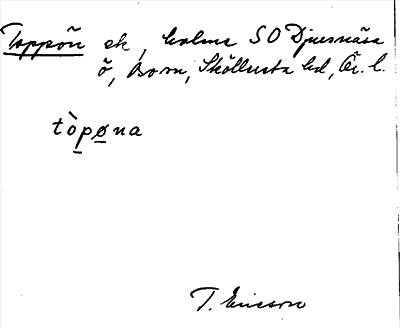 Toppön ek, holme SO Djursnäsa
ö, Asker sn, Sköllersta hd, Ör. l.
tòpøna
T. Ericsson